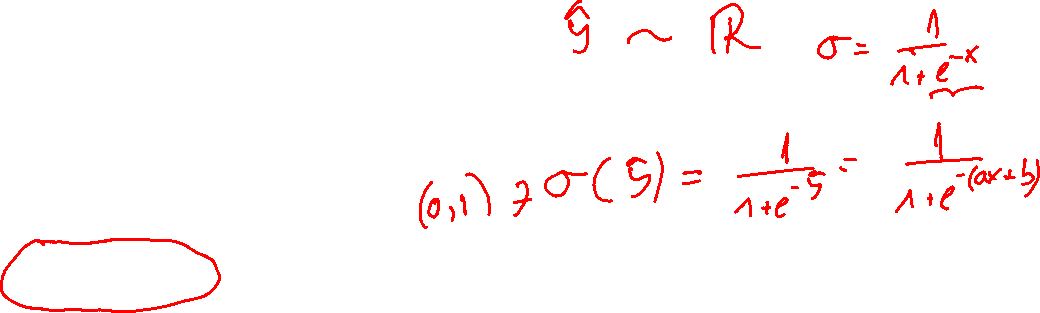 ŷ ~ ℝ σ = 1/(1+e^{-x})
(0,1) ∋ σ(ŷ) = 1/(1+e^{-ŷ}) = 1/(1+e^{-(ax+b)})